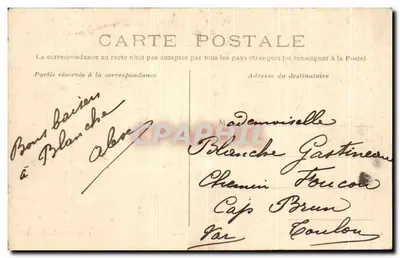 CARTE POSTALE
La correspondance au recto n'est pas acceptée par tous les pays étrangers (se renseigner à la Poste)
Partie réservée à la correspondance
Adresse du destinataire
Bons baisers
à Blanche
Mademoiselle
Blanche Gastineau
Chemin Foucou
Cap Brun
Var Toulon
CPAPHIL